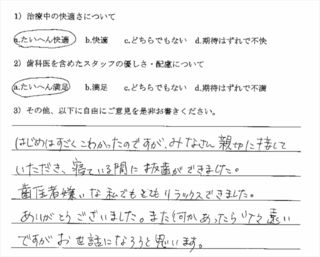 1）治療中の快適さについて
a.たいへん快適 b.快適 c.どちらでもない d.期待はずれで不快
2）歯科医を含めたスタッフの優しさ・配慮について
a.たいへん満足 b.満足 c.どちらでもない d.期待はずれで不満
3）その他、以下に自由にご意見を是非お書きください。
はじめはすごくこわかったのですが、みなさん親切に接して
いただき、寝ている間に抜歯ができました。
歯医者嫌いな私でもとてもリラックスできました。
ありがとうございました。また何かあったら 遠い
ですがお世話になろうと思います。